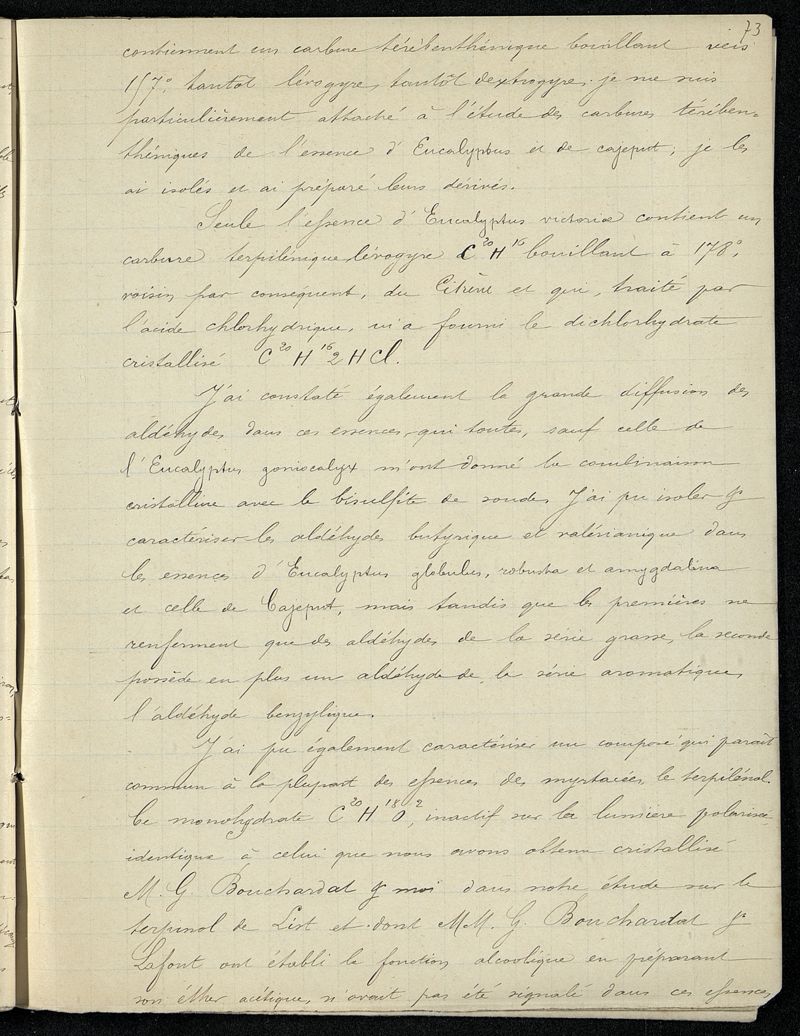 73
contiennent un carbure térébenthénique bouillant vers
157°, tantôt lévogyre, tantôt dextrogyre; je me suis
particulièrement attaché à l'étude des carbures térében=
théniques de l'essence d'Eucalyptus et de cajeput; je les
ai isolés et ai préparé leurs dérivés.
Seule l'essence d'Eucalyptus victoriæ contient un
carbure terpilénique lévogyre C²⁰H¹⁶ bouillant à 178°,
voisin, par conséquent, du Citrène et qui, traité par
l'acide chlorhydrique, m'a fourni le dichlorhydrate
cristallisé C²⁰H¹⁶2HCl.
J'ai constaté également la grande diffusion des
aldéhydes dans ces essences, qui toutes, sauf celle de
l'Eucalyptus goniocalyx m'ont donné la combinaison
cristalline avec le bisulfite de soude. J'ai pu isoler &
caractériser les aldéhydes butyrique et valérianique dans
les essences d'Eucalyptus globulus, robusta et amygdalina
et celle de Cajeput, mais tandis que les premières ne
renferment que des aldéhydes de la série grasse, la seconde
possède en plus un aldéhyde de la série aromatique,
l'aldéhyde benzylique.
J'ai pu également caractériser un composé qui paraît
commun à la plupart des essences des myrtacées, le terpilénol.
Ce monohydrate C²⁰H¹⁸O², inactif sur la lumière polarisée
identique à celui que nous avons obtenu cristallisé
M. G. Bouchardat & moi dans notre étude sur le
terpinol de List et dont MM. G. Bouchardat &
Lafont ont établi la fonction alcoolique en préparant
son éther acétique, n'avait pas été signalé dans ces essences,